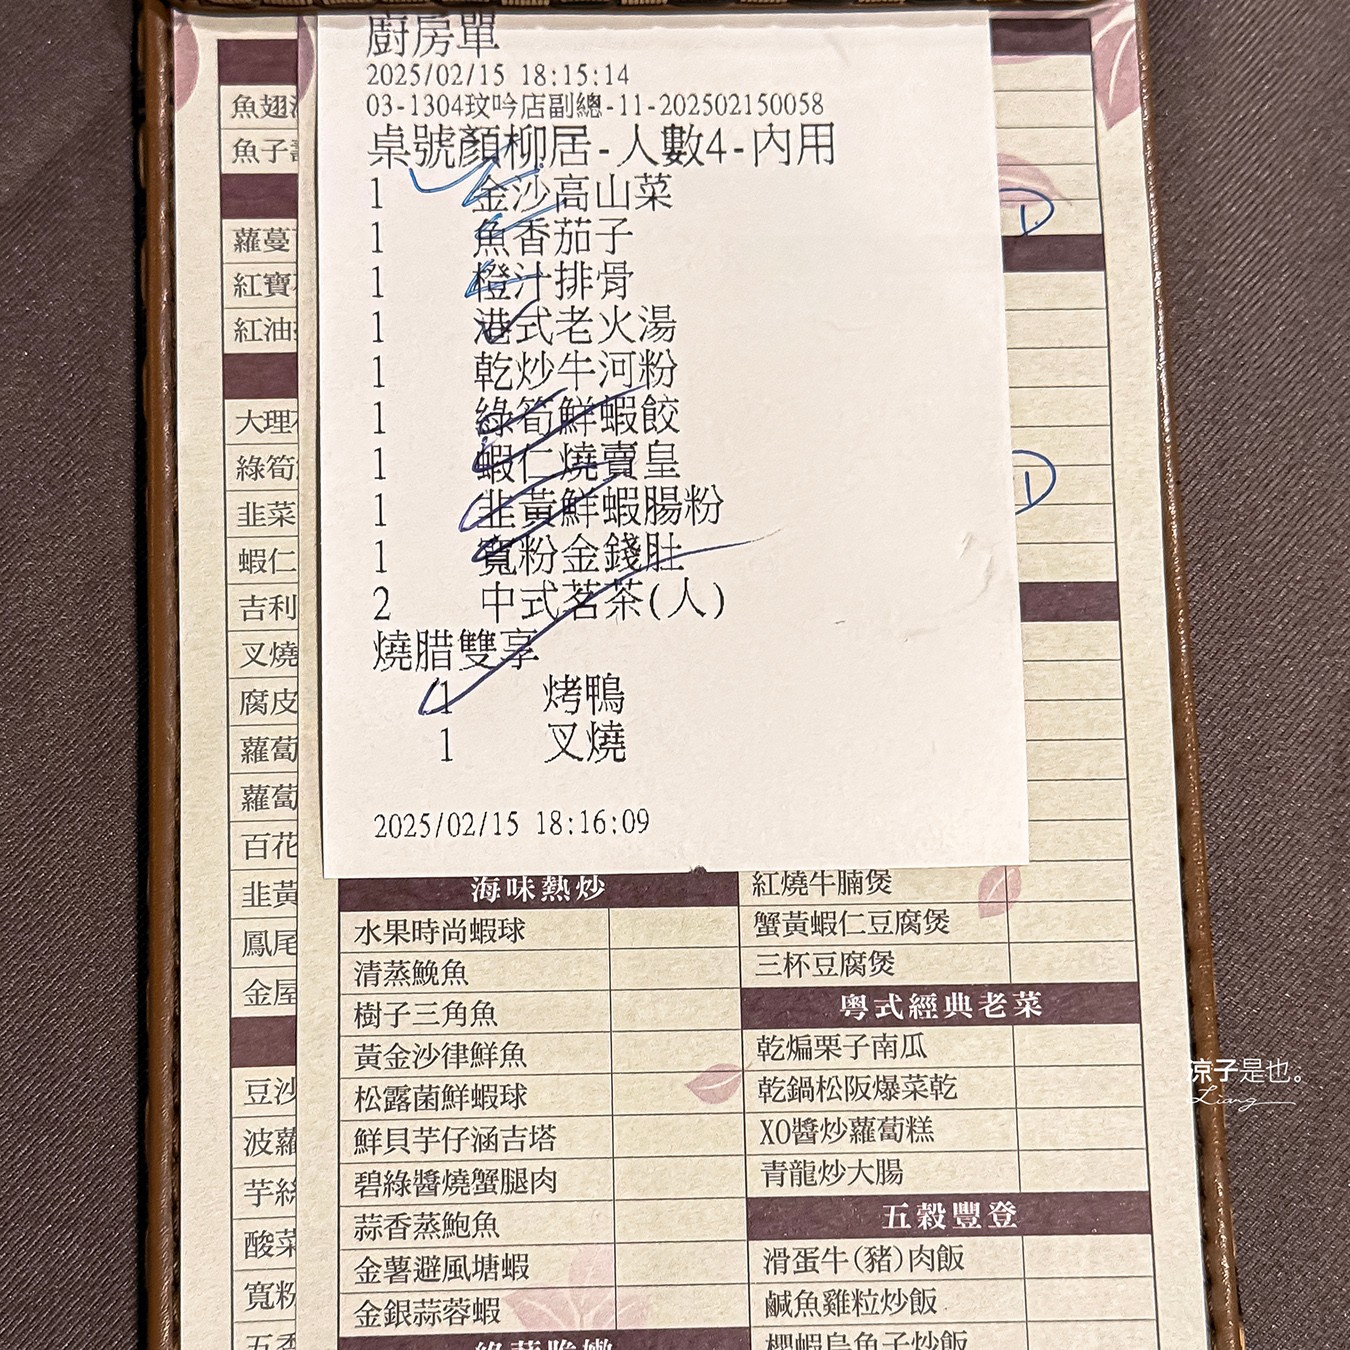 廚房單
2025/02/15 18:15:14
03-1304玟吟店副總-11-202502150058
桌號顏柳居-人數4-內用
1 金沙高山菜
1 魚香茄子
1 橙汁排骨
1 港式老火湯
1 乾炒牛河粉
1 綠筍鮮蝦餃
1 蝦仁燒賣皇
1 韭黃鮮蝦腸粉
1 寬粉金錢肚
2 中式茗茶(人)
燒腊雙享
1 烤鴨
1 叉燒
2025/02/15 18:16:09
魚翅
魚子
蘿蔓
紅寶
紅油
大理
綠筍
韭菜
蝦仁
吉利
叉燒
腐皮
蘿蔔
蘿蔔
百花
韭黃
鳳尾
金屋
豆沙
波蘿
芋絲
酸菜
寬粉
海味熱炒
水果時尚蝦球
清蒸鮸魚
樹子三角魚
黃金沙律鮮魚
松露菌鮮蝦球
鮮貝芋仔涵吉塔
碧綠醬燒蟹腿肉
蒜香蒸鮑魚
金薯避風塘蝦
金銀蒜蓉蝦
紅燒牛腩煲
蟹黃蝦仁豆腐煲
三杯豆腐煲
粵式經典老菜
乾煸栗子南瓜
乾鍋松阪爆菜乾
XO醬炒蘿蔔糕
青龍炒大腸
五穀豐登
滑蛋牛(豬)肉飯
鹹魚雞粒炒飯
櫻蝦烏魚子炒飯
涼子是也。
Liang